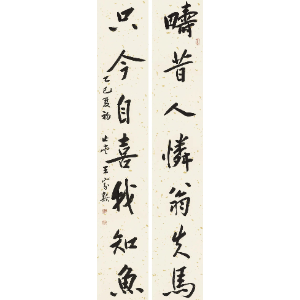 疇昔人憐翁失馬
只今自喜我知魚
乙巳夏初
王家新